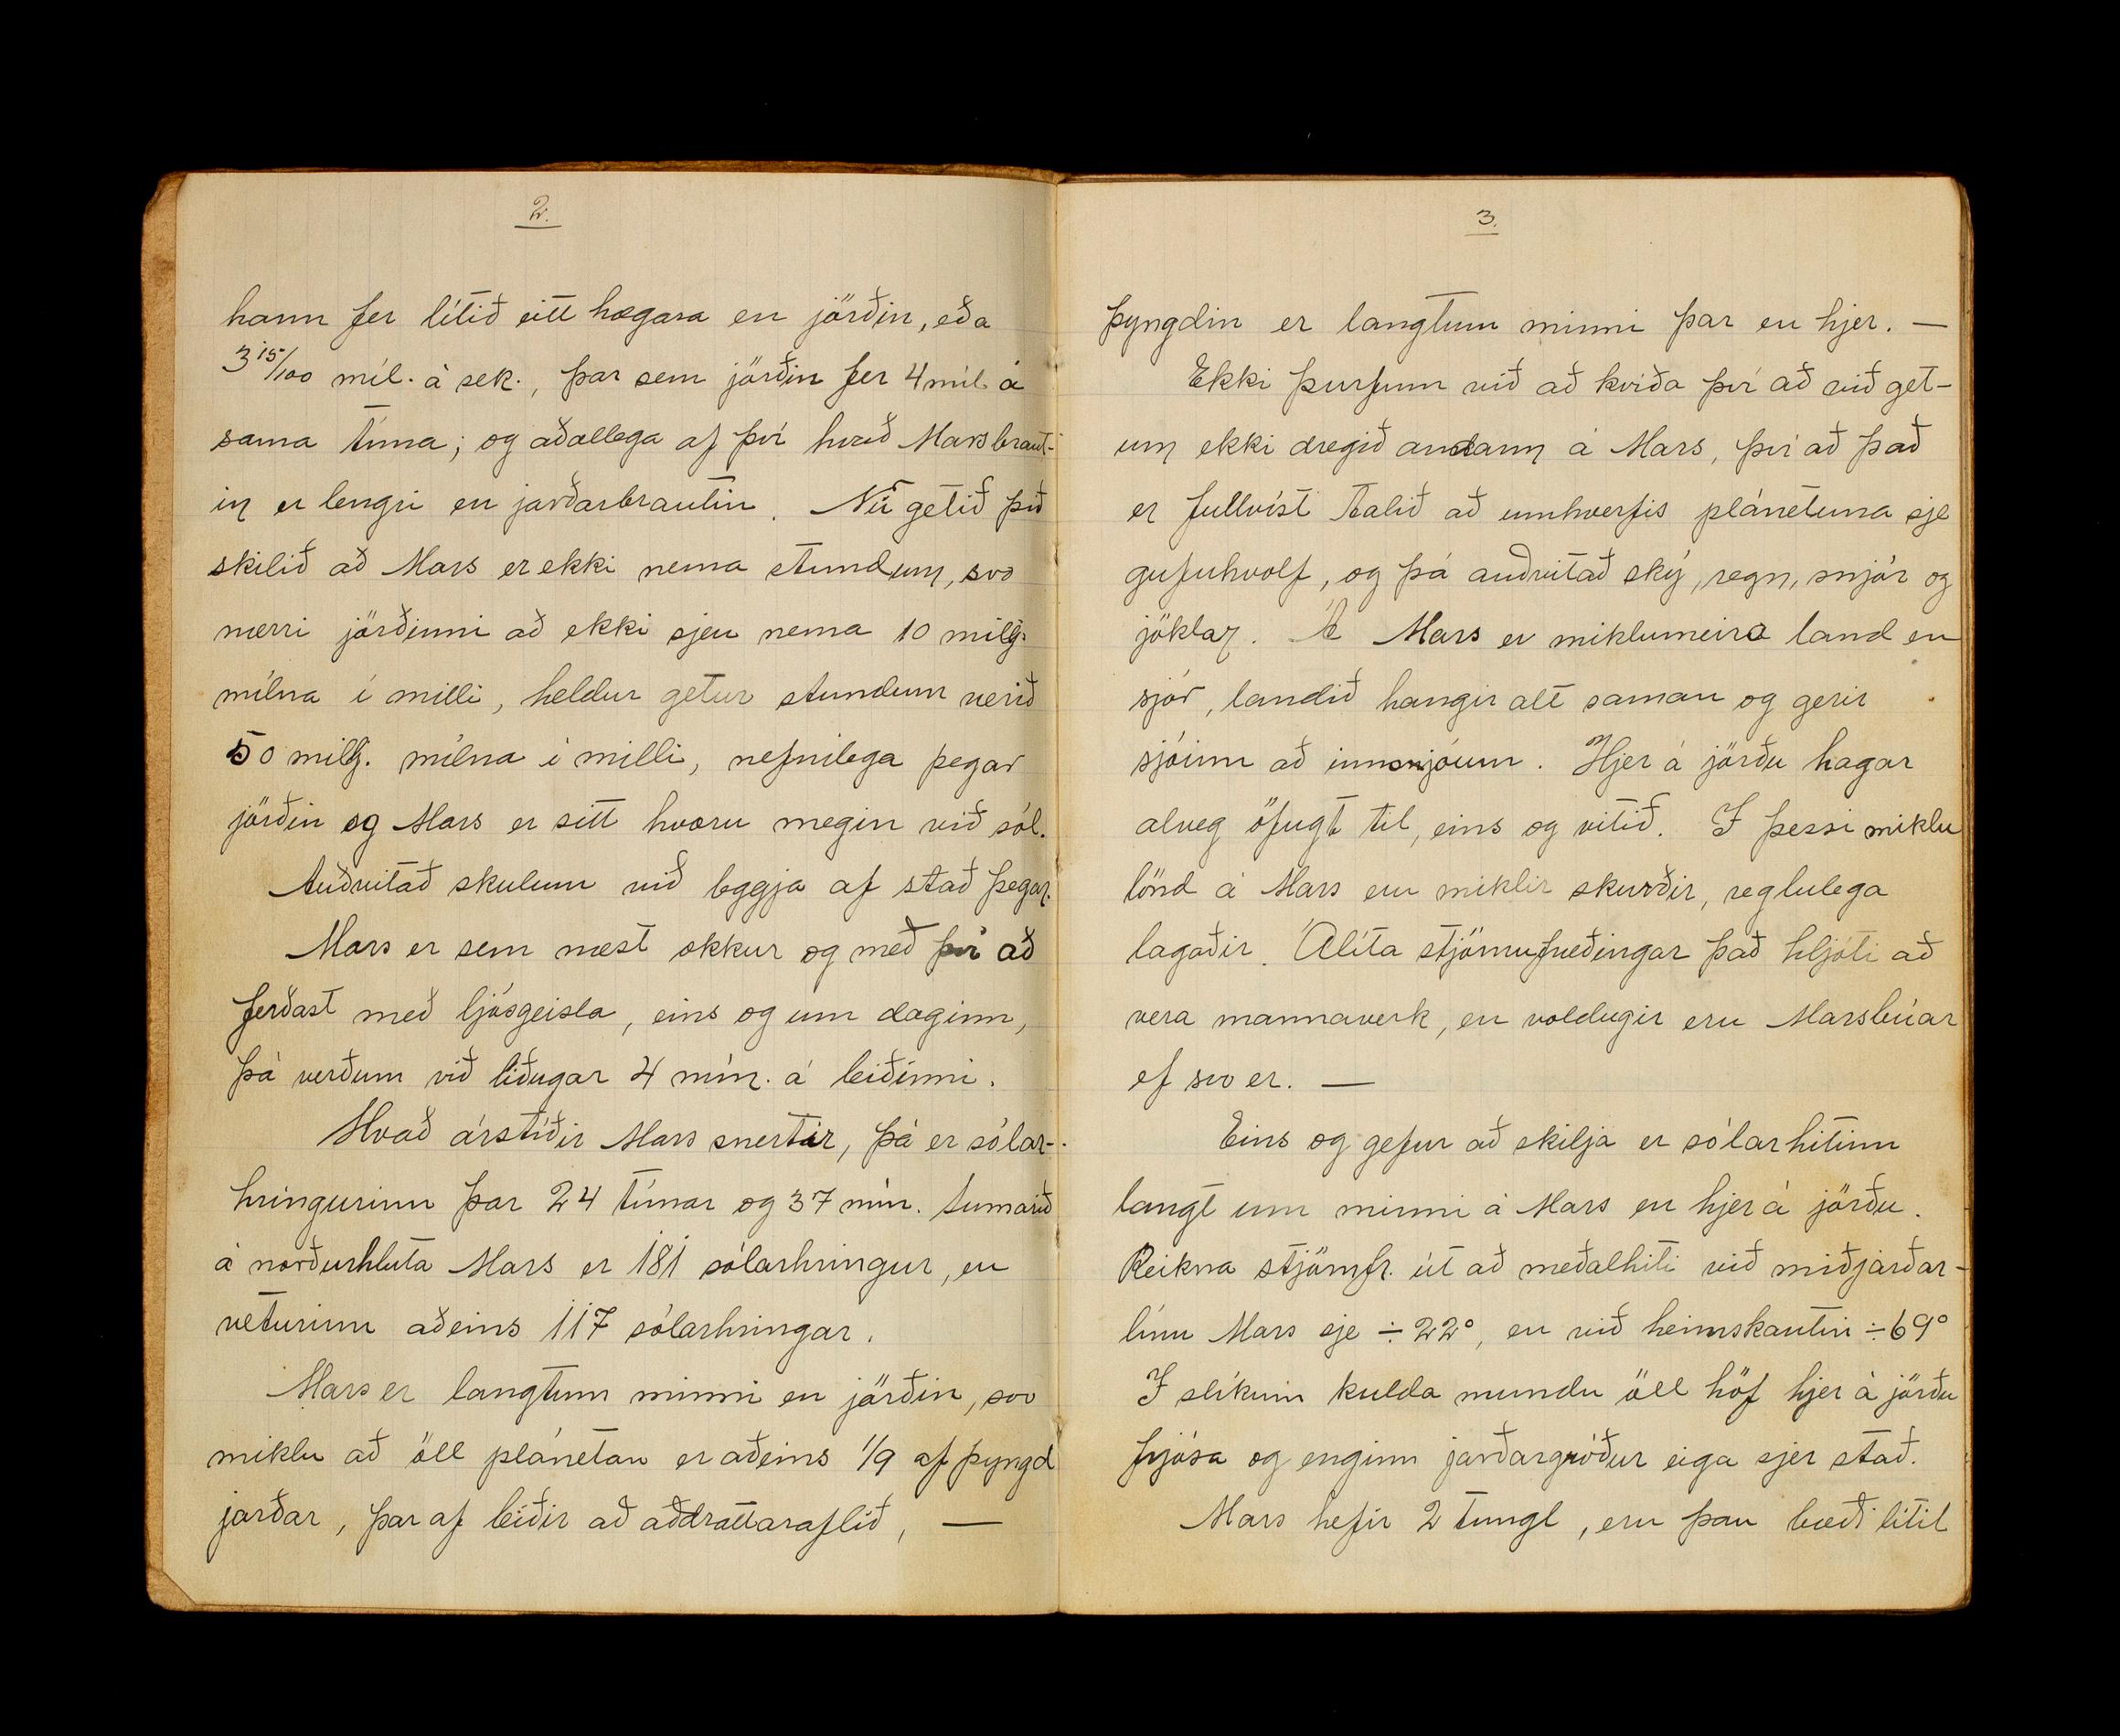 2.
hann fer lítið eitt hægara en jörðin, eða
3 15/100 míl. á sek., þar sem jörðin fer 4 míl. á
sama tíma; og aðallega af því hvað Marsbraut-
in er lengri en jarðarbrautin. Nú getið þið
skilið að Mars er ekki nema stundum, svo
nærri jörðinni að ekki sjeu nema 10 millj.
mílna í milli, heldur getur stundum verið
50 millj. mílna í milli, nefnilega þegar
jörðin og Mars er sitt hvoru megin við sól.
Auðvitað skulum við leggja af stað þegar
Mars er sem næst okkur og með því að
ferðast með ljósgeisla, eins og um daginn,
þá verðum við liðugar 4 mín. á leiðinni.
Hvað árstíðir Mars snertir, þá er sólar-
hringurinn þar 24 tímar og 37 mín. Sumarið
á norðurhluta Mars er 181 sólarhringur, en
veturinn aðeins 117 sólarhringar.
Mars er langtum minni en jörðin, svo
miklu að öll plánetan er aðeins 1/9 af þyngd
jarðar, þar af leiðir að aðdráttaraflið, —
3.
þyngdin er langtum minni þar en hjer. —
Ekki þurfum við að kviða því að við get-
um ekki dregið andann á Mars, því að það
er fullvíst talið að umhverfis plánetuna sje
gufuhvolf, og þá auðvitað ský, regn, snjór og
jöklar. Á Mars er miklu meira land en
sjór, landið hangir alt saman og gerir
sjóinn að innsjóum. Hjer á jörðu hagar
alveg öfugt til, eins og vitið. I þessi miklu
lönd á Mars eru miklir skurðir, reglulega
lagaðir. Álíta stjörnufræðingar það hljóti að
vera mannaverk, en voldugir eru Marsbúar
ef svo er. —
Eins og gefur að skilja er sólarhitinn
langt um minni á Mars en hjer á jörðu.
Reikna stjörnufr. út að meðalhiti við miðjarðar-
línu Mars sje ÷ 22°, en við heimskautin ÷ 69°
I slíkum kulda mundu öll höf hjer á jörðu
frjósa og enginn jarðargróður eiga sjer stað.
Mars hefir 2 tungl, eru þau bæði lítil